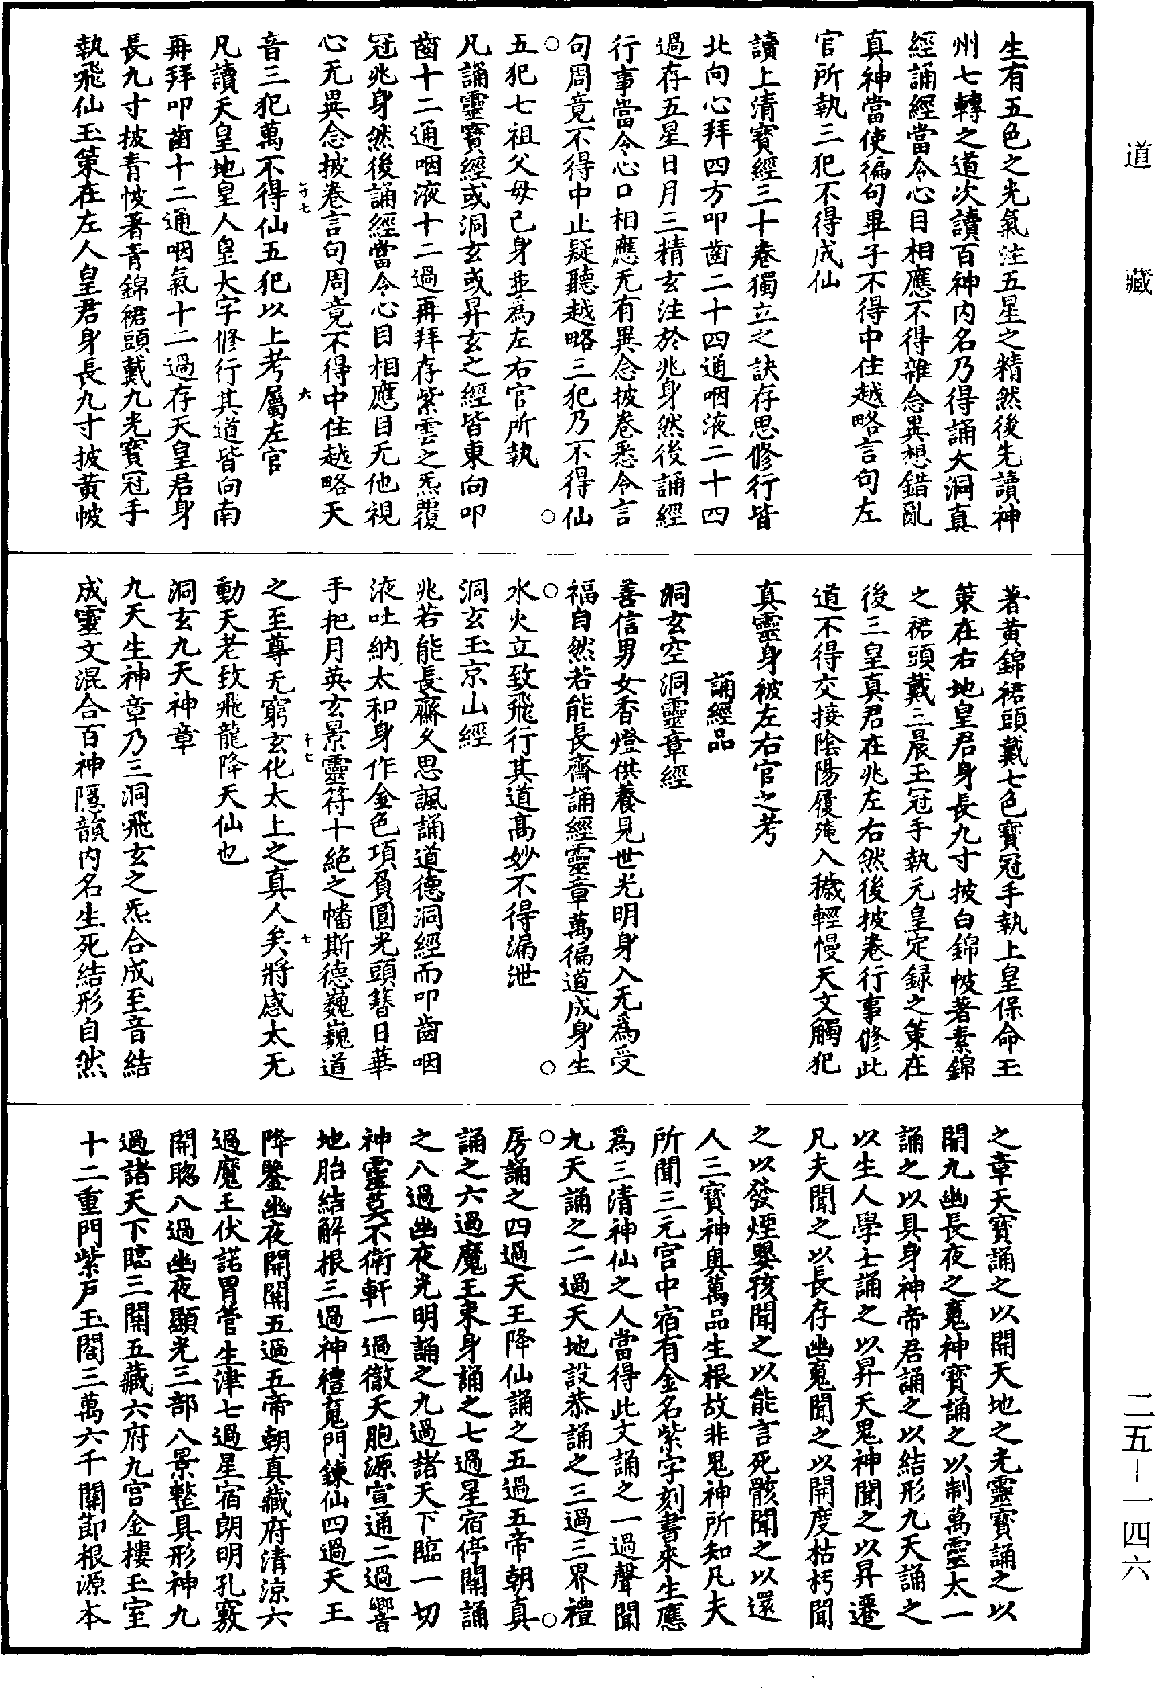 生有五色之光氣注五星之精然後先讀神
州七轉之道次讀百神內名乃得誦大洞真
經誦經當令心目相應不得雜念異想錯亂
真神當使徧句畢子不得中住越略言句左
官所執三犯不得成仙
讀上清寶經三十卷獨立之訣存思修行皆
北向心拜四方叩齒二十四通咽液二十四
過存五星日月三精玄注於兆身然後誦經
行事當令心口相應无有異念披卷悉令言
句周竟不得中止疑聽越略三犯乃不得仙
五犯七祖父母已身並為左右官所執
凡誦靈寶經或洞玄或昇玄之經皆東向叩
齒十二通咽液十二過再拜存紫雲之炁覆
冠兆身然後誦經當令心目相應目无他視
心无異念披卷言句周竟不得中住越略天
音三犯萬不得仙五犯以上考屬左官
凡讀天皇地皇人皇大字修行其道皆向南
再拜叩齒十二通咽氣十二過存天皇君身
長九寸披青帔著青錦裙頭戴九光寶冠手
執飛仙玉策在左人皇君身長九寸披黃帔
著黃錦裙頭戴七色寶冠手執上皇保命玉
策在右地皇君身長九寸披白錦帔著素錦
之裙頭戴三晨玉冠手執元皇定録之策在
後三皇真君在兆左右然後披卷行事修此
道不得交接陰陽履淹入穢輕慢天文觸犯
真靈身被左右官之考
誦經品
洞玄空洞靈章經
善信男女香燈供養見世光明身入无為受
福自然若能長齋誦經靈章萬徧道成身生
水火立致飛行其道高妙不得漏泄
洞玄玉京山經
兆若能長齋久思諷誦道德洞經而叩齒咽
液吐納太和身作金色項負圓光頭簪日華
手把月英玄景靈符十絶之幡斯德巍巍道
之至尊无窮玄化太上之真人矣將感太无
動天老致飛龍降天仙也
洞玄九天神章
九天生神章乃三洞飛玄之炁合成至音結
成靈文混合百神隱韻內名生死結形自然
之章天寶誦之以開天地之光靈寶誦之以
開九幽長夜之䰟神寶誦之以制萬靈太一
誦之以具身神帝君誦之以結形九天誦之
以生人學士誦之以昇天鬼神聞之以昇遷
凡夫聞之以長存幽䰟聞之以開度枯朽聞
之以發煙嬰孩聞之以能言死骸聞之以還
人三寶神奧萬品生根故非鬼神所知凡夫
所聞三元宮中宿有金名紫字刻書來生應
為三清神仙之人當得此文誦之一過聲聞
九天誦之二過天地設恭誦之三過三界禮
房誦之四過天王降仙誦之五過五帝朝真
誦之六過魔王束身誦之七過星宿停關誦
之八過幽夜光明誦之九過諸天下臨一切
神靈莫不衛軒一過徹天胞源宣通二過響
地胎結解根三過神禮䰟門鍊仙四過天王
降鑒幽夜開關五過五帝朝真藏府清涼六
過魔王伏諾胃管生津七過星宿朗明孔竅
開聰八過幽夜顯光三部八景整具形神九
過諸天下臨三關五藏六府九宮金樓玉室
十二重門紫戶玉閤三萬六千關節根源本
道藏
二五—一四六